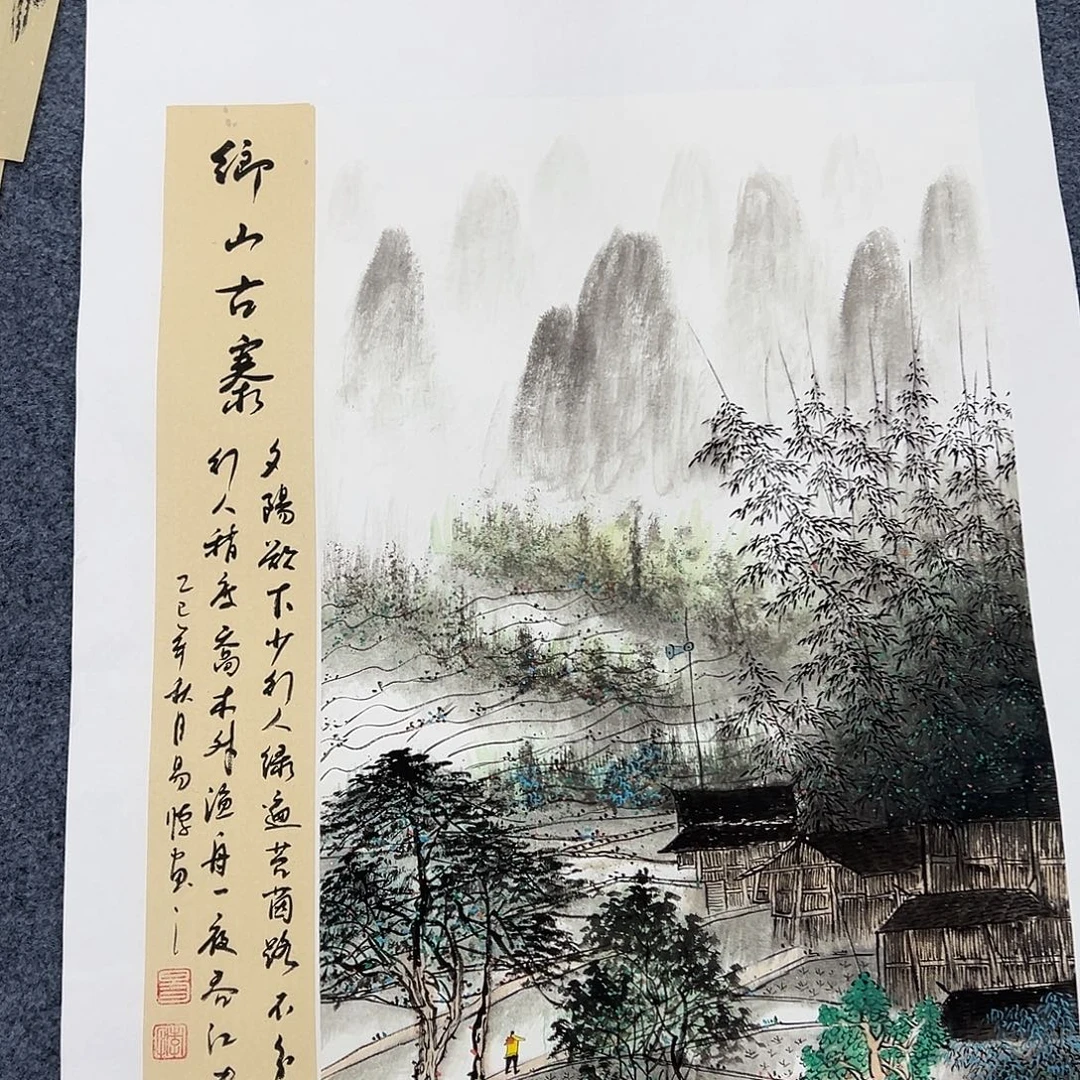 鄉山古寨
夕陽欲下少行人綠遍苔茵路不分
行人稍度喬木外漁舟一夜春江
乙巳年秋月易 画之